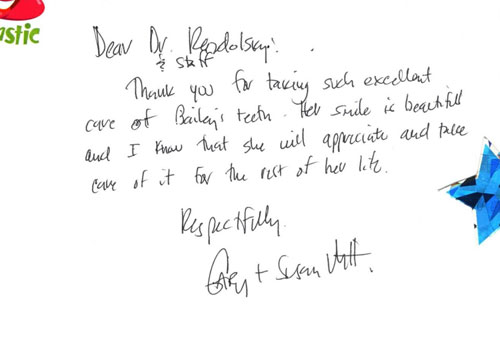 astic
Dear Dr. Rendolsky!
& staff
Thank you for taking such excellent
care of Bailey's teeth. Her smile is beautiful
and I know that she will appreciate and take
care of it for the rest of her life.
Respectfully.
Gary + Susan